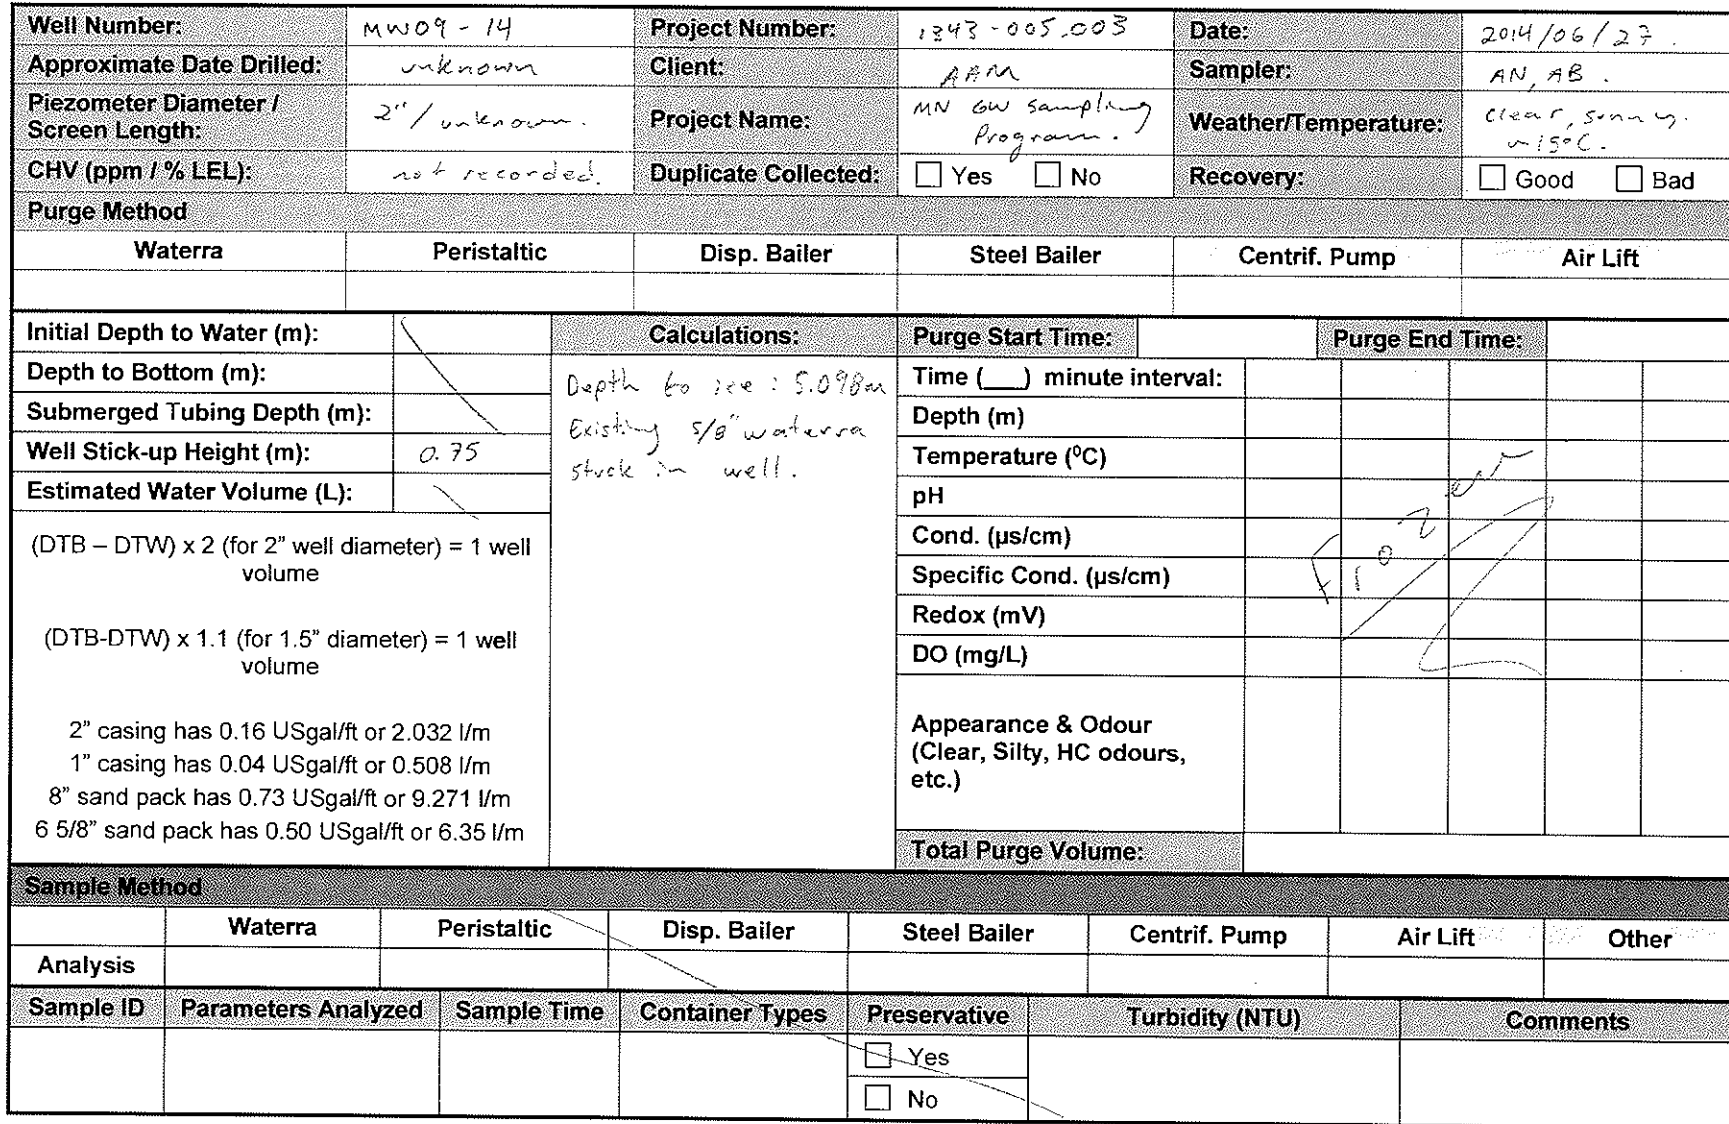 Well Number: MW09-14 Project Number: 1343-005.003 Date: 2014/06/27.
Approximate Date Drilled: unknown Client: AAM Sampler: AN, AB.
Piezometer Diameter / Screen Length: 2" / unknown. Project Name: MN GW Sampling Program. Weather/Temperature: clear, sunny. ~15°C.
CHV (ppm / % LEL): not recorded. Duplicate Collected: ☐ Yes ☐ No Recovery: ☐ Good ☐ Bad
Purge Method
Waterra Peristaltic Disp. Bailer Steel Bailer Centrif. Pump Air Lift
Initial Depth to Water (m):
Depth to Bottom (m):
Submerged Tubing Depth (m):
Well Stick-up Height (m): 0.75
Estimated Water Volume (L):
(DTB – DTW) x 2 (for 2" well diameter) = 1 well
volume
(DTB-DTW) x 1.1 (for 1.5" diameter) = 1 well
volume
2" casing has 0.16 USgal/ft or 2.032 l/m
1" casing has 0.04 USgal/ft or 0.508 l/m
8" sand pack has 0.73 USgal/ft or 9.271 l/m
6 5/8" sand pack has 0.50 USgal/ft or 6.35 l/m
Calculations:
Depth to ice: 5.098m
Existing 5/8" waterra
stuck in well.
Purge Start Time: Purge End Time:
Time (___) minute interval:
Depth (m)
Temperature (⁰C)
pH
Cond. (µs/cm)
Specific Cond. (µs/cm)
Redox (mV)
DO (mg/L)
Frozen
Appearance & Odour
(Clear, Silty, HC odours,
etc.)
Total Purge Volume:
Sample Method
Waterra Peristaltic Disp. Bailer Steel Bailer Centrif. Pump Air Lift Other
Analysis
Sample ID Parameters Analyzed Sample Time Container Types Preservative Turbidity (NTU) Comments
☐ Yes
☐ No